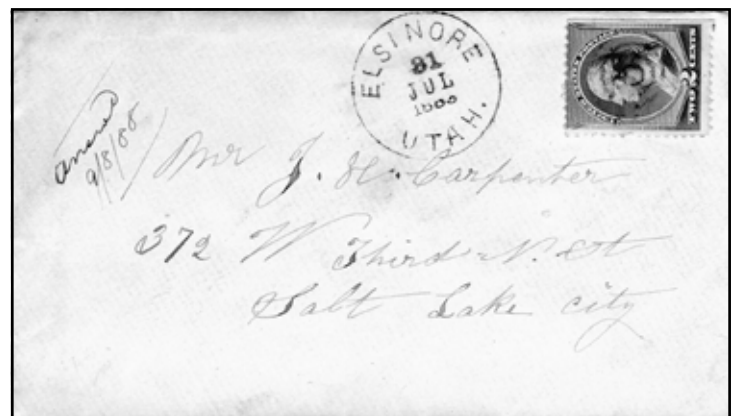 ELSINORE
31
JUL
UTAH.
TWO 2 CENTS
9/8/88
Mr J. H. Carpenter
372 W Third N. St
Salt Lake city